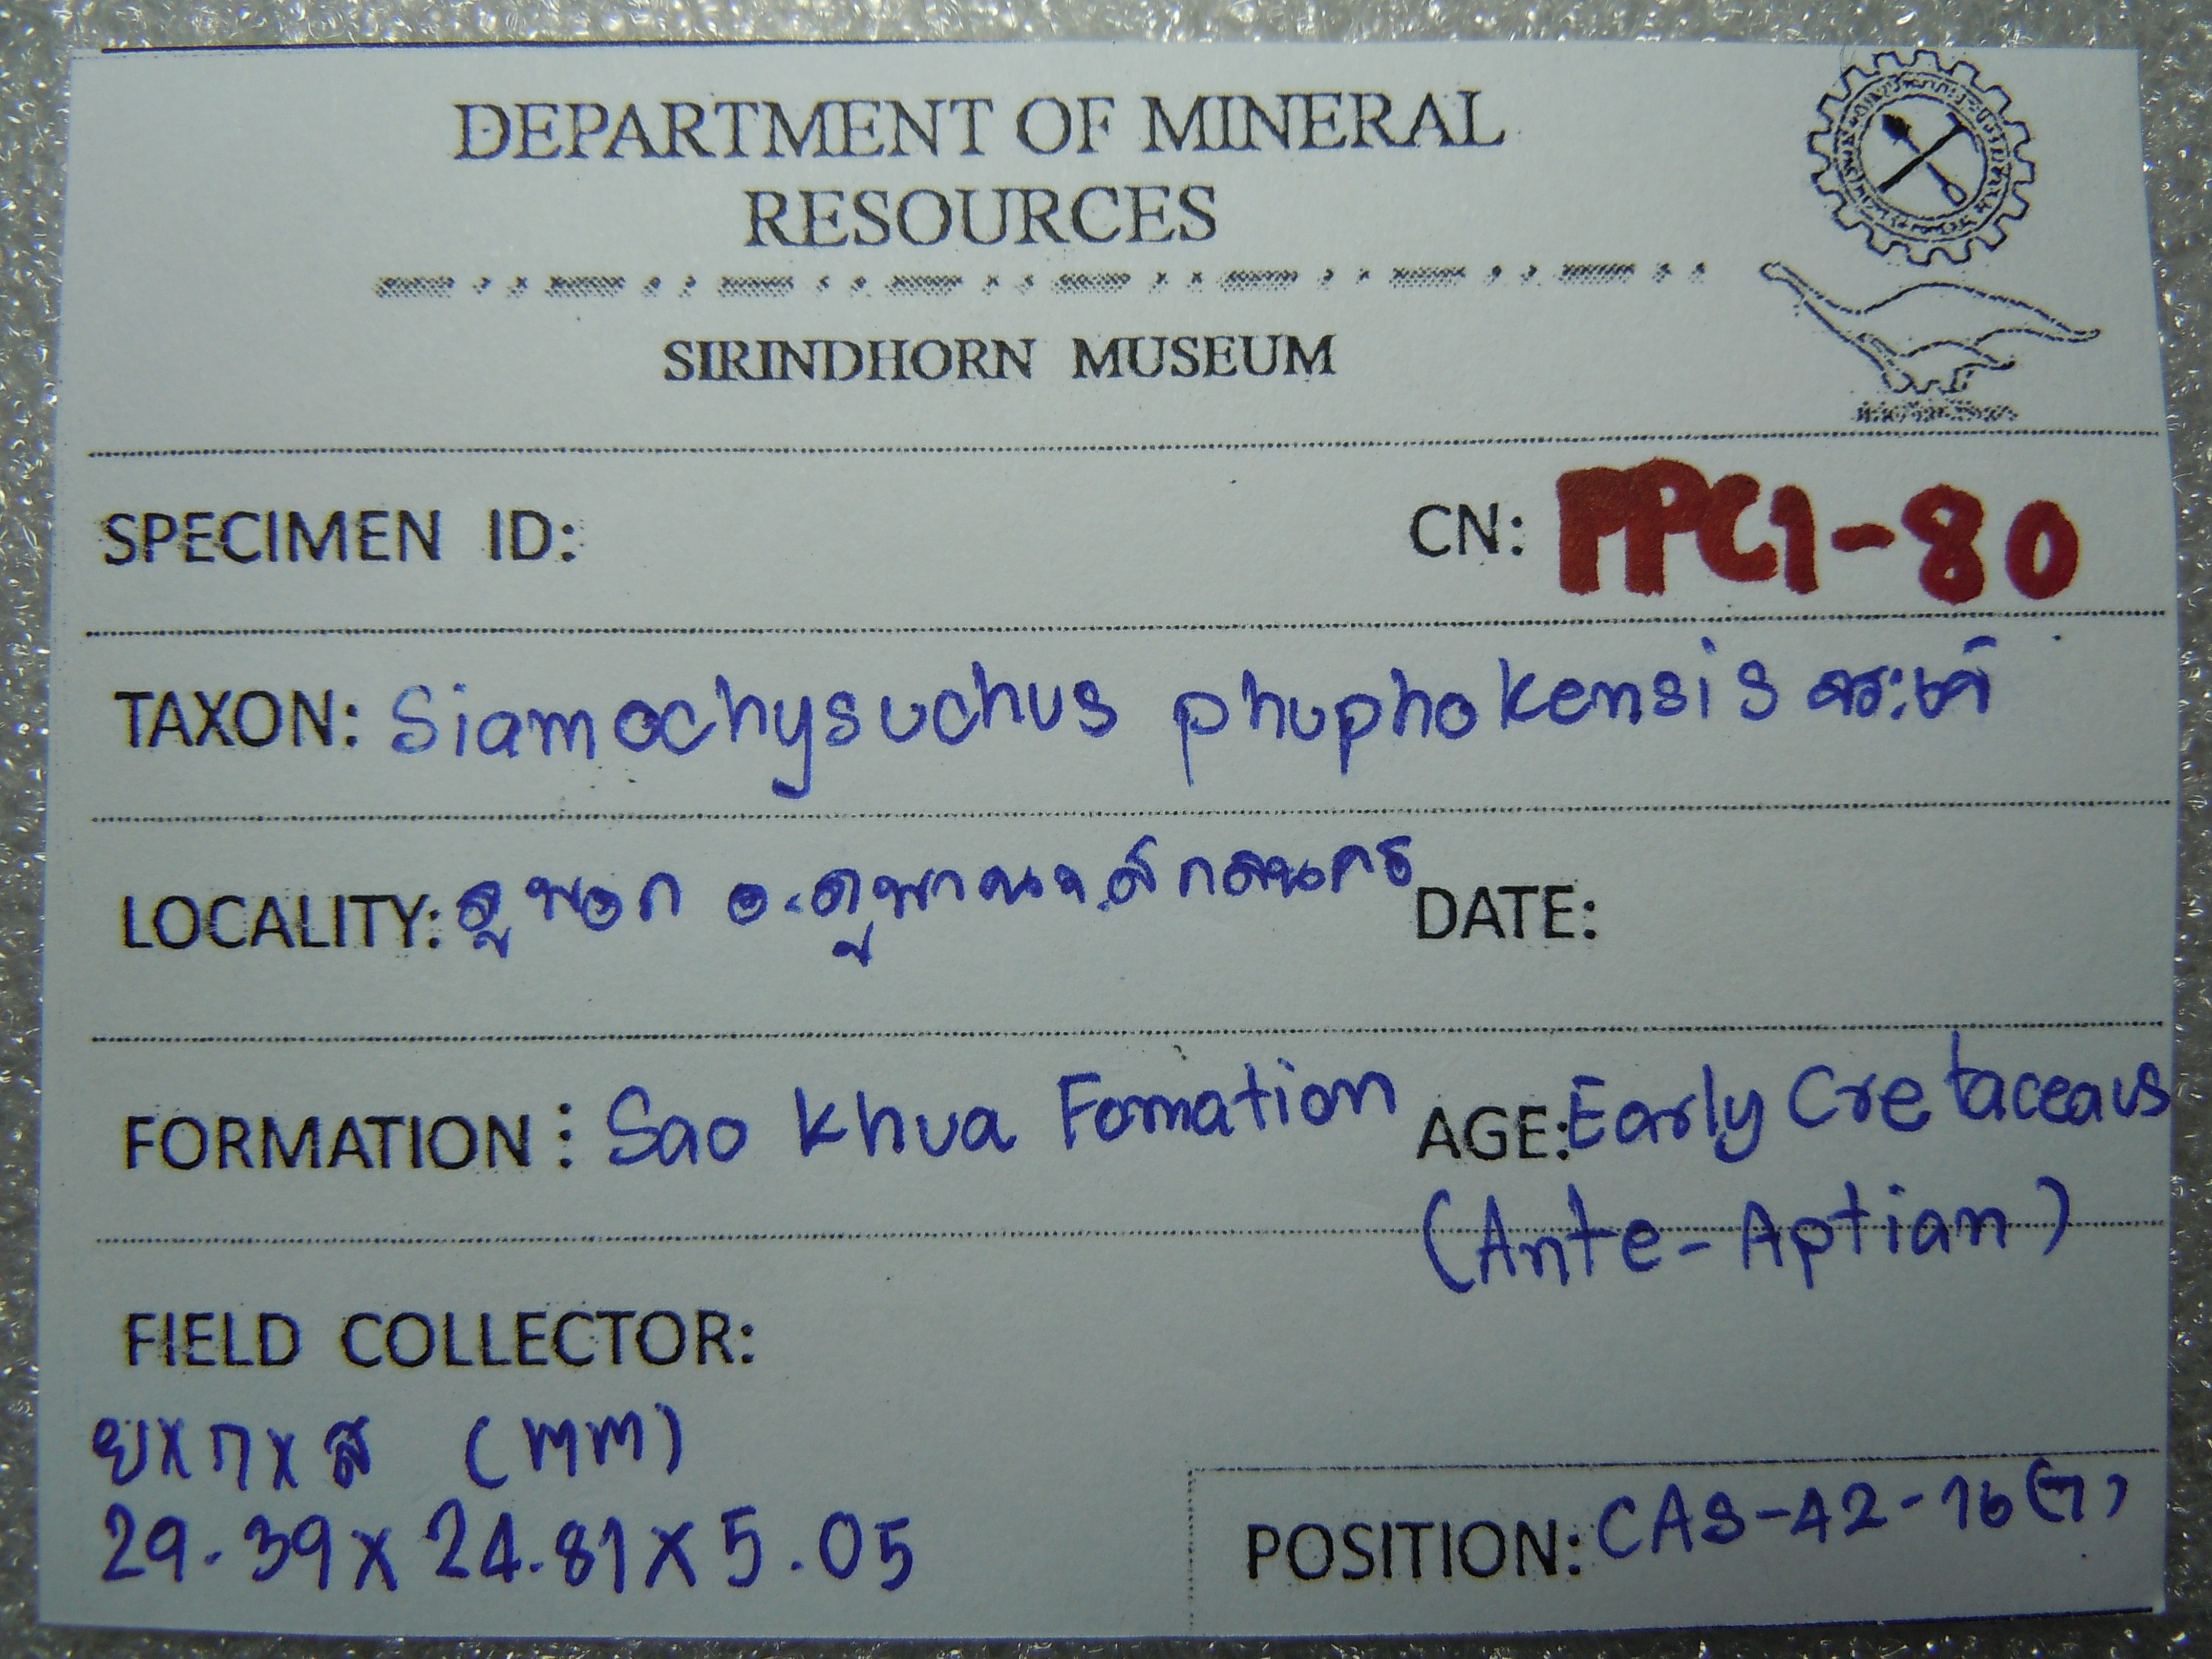 DEPARTMENT OF MINERAL
RESOURCES
SIRINDHORN MUSEUM
SPECIMEN ID: CN: PPC1-80
TAXON: Siamochysuchus phuphokensis
LOCALITY: ภูพอก อ.ภูพาน จ.สกลนคร DATE:
FORMATION: Sao Khua Fomation AGE: Early Cretaceaus
(Ante-Aptian)
FIELD COLLECTOR:
ยxกxส (mm)
29.39x24.81x5.05
POSITION: CAS-42-16(7)